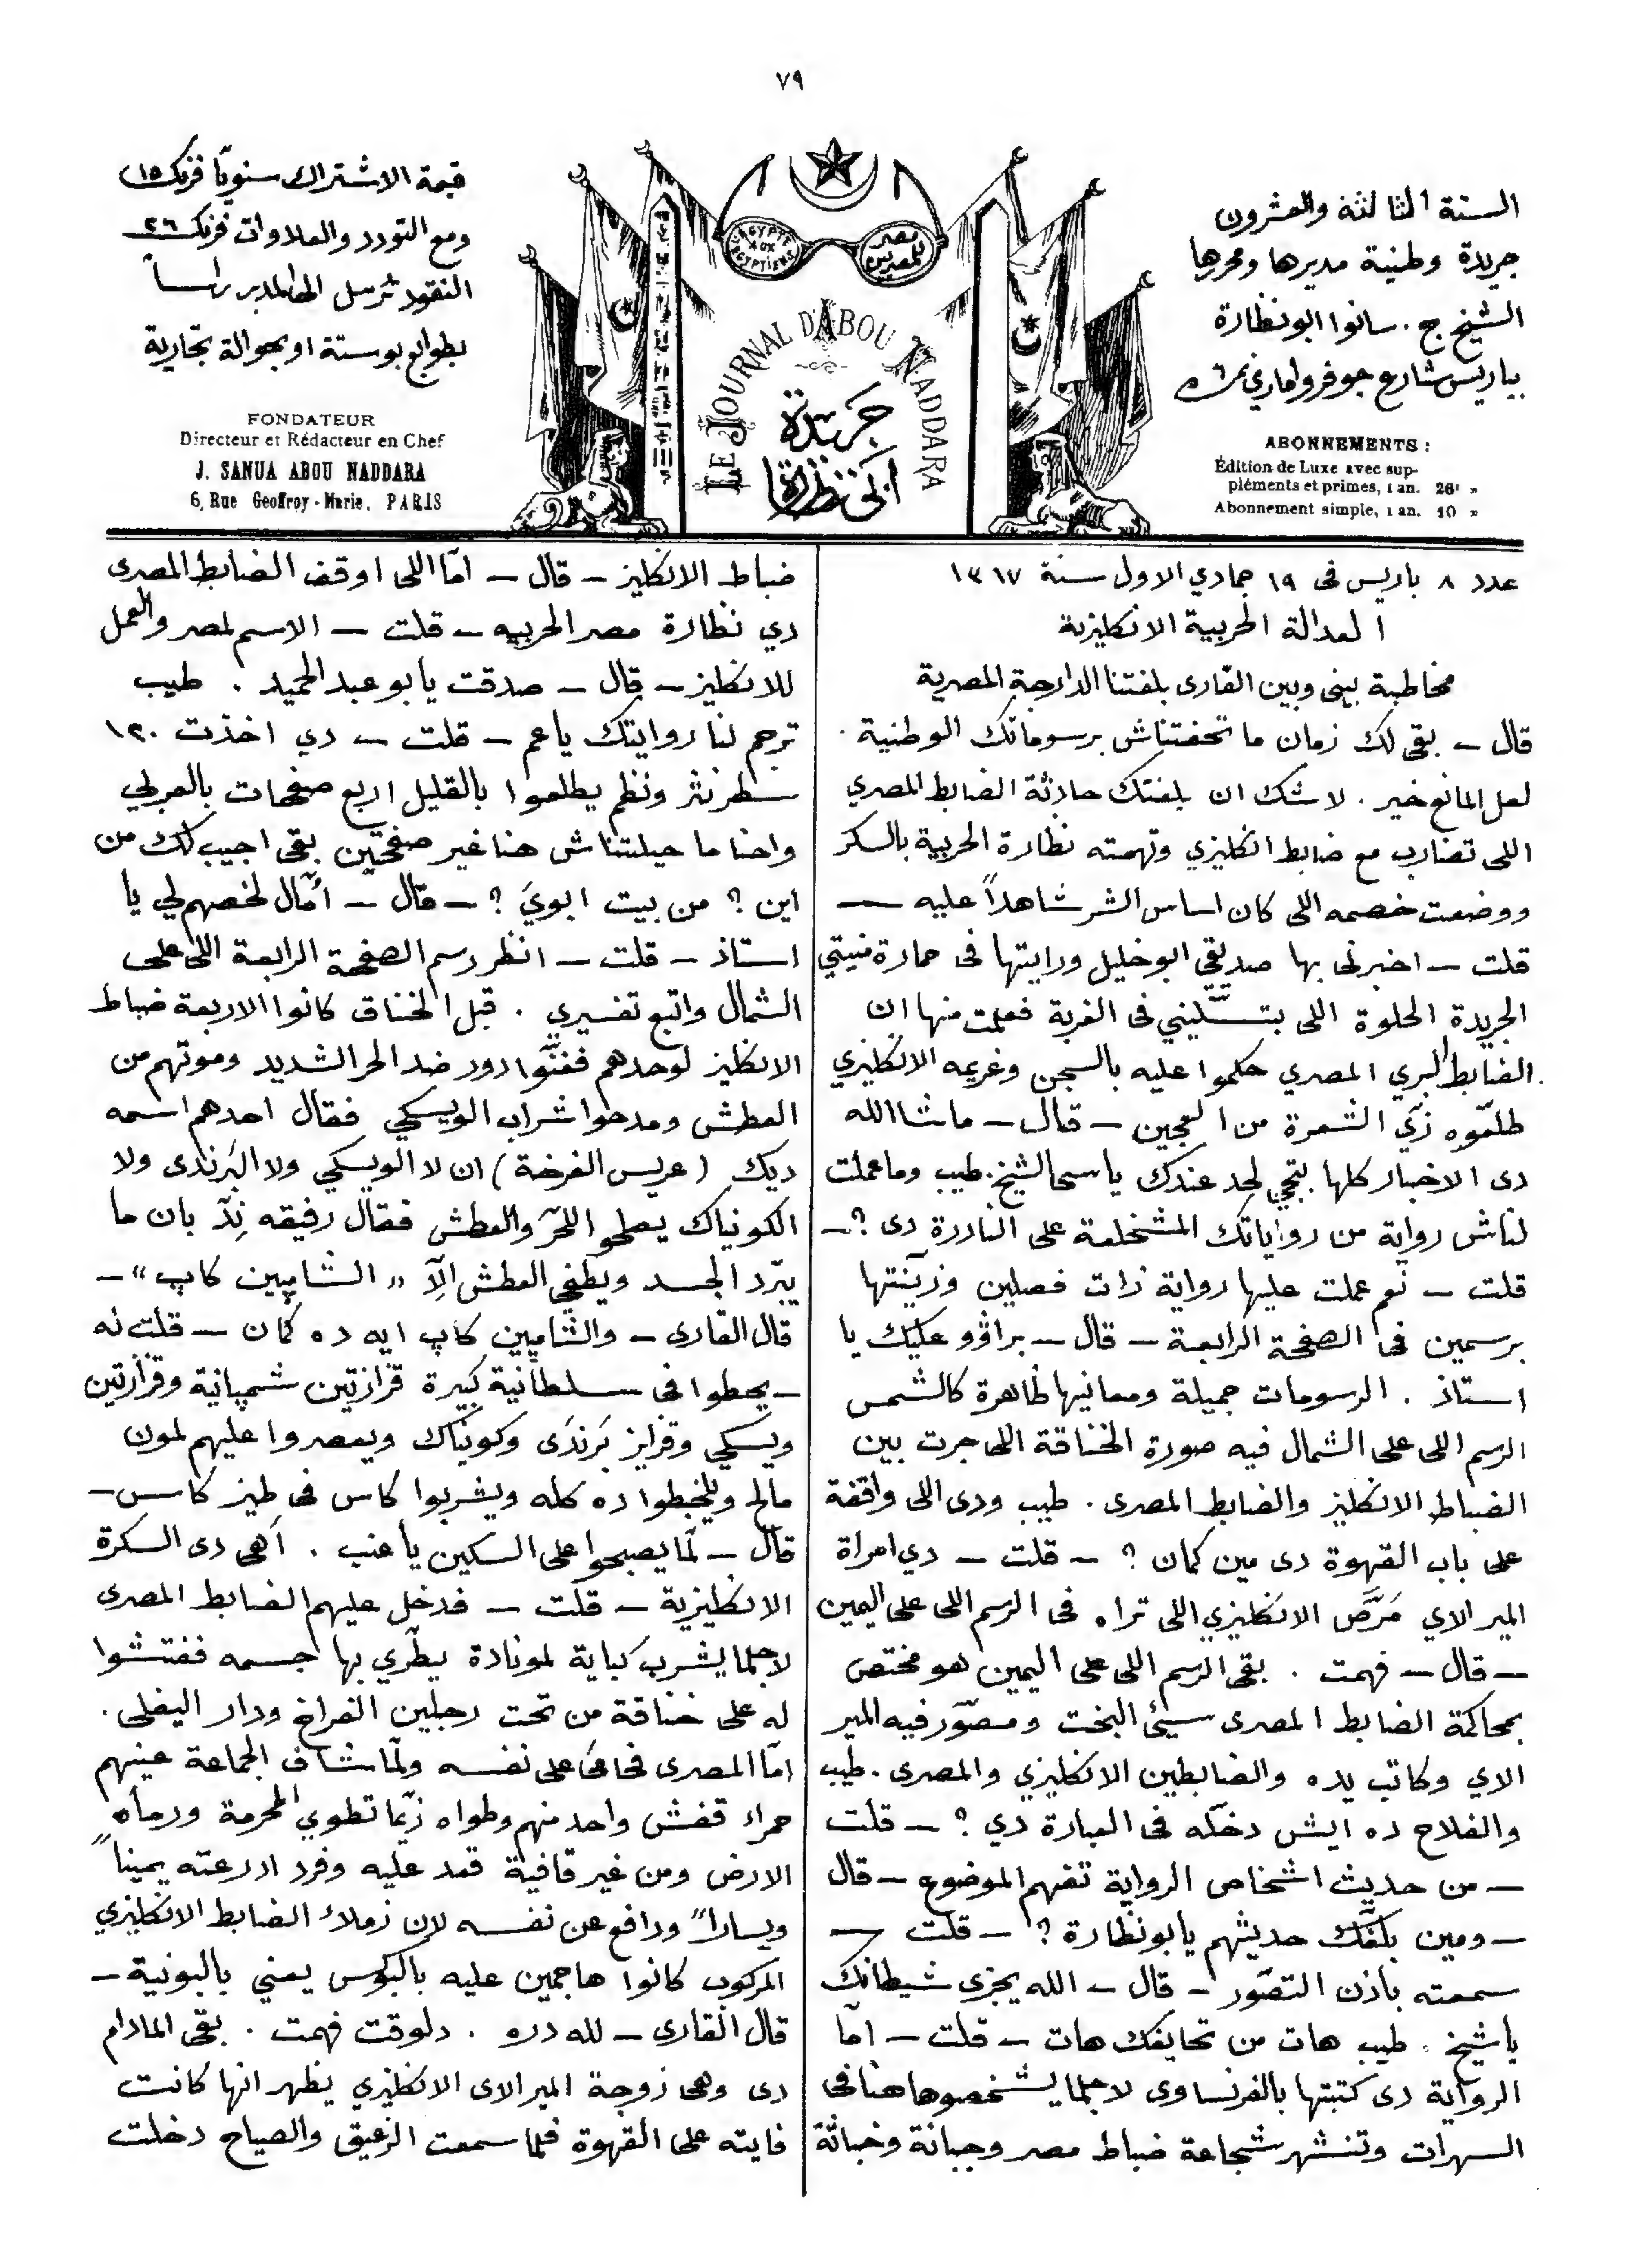 ٧٩
السنة الثالثة والعشرون
جريدة وطنية مديرها ومحررها
الشيخ ج. سانوا ابو نظارة
بباريس شارع جوفروا ماري نمرة ٦
ABONNEMENTS :
Édition de Luxe avec sup-
pléments et primes, 1 an. 26f »
Abonnement simple, 1 an. 10 »
L'ÉGYPTE AUX ÉGYPTIENS
مصر للمصريين
LE JOURNAL D'ABOU NADDARA
جريدة
ابي نظارة
قيمة الاشتراك سنويًا فرنك ١٥
ومع التورد والعلاوات فرنك ٢٦
النقود ترسل الى المدير راساً
بطوابع بوستة او بحوالة تجارية
FONDATEUR
Directeur et Rédacteur en Chef
J. SANUA ABOU NADDARA
6, Rue Geoffroy-Marie, PARIS
عدد ٨ باريس فى ١٩ جمادي الاول سنة ١٣١٧
العدالة الحربية الانكليزية
مخاطبة بينى وبين القارى بلغتنا الدارجة المصرية
قال – بقى لك زمان ما تحفتناش برسوماتك الوطنية .
لعل المانع خير . لا شك ان بلغتك حادثة الضابط المصري
اللى تضارب مع ضابط انكليزي وتهمته نظارة الحربية بالسكر
ووضعت خصمه اللى كان اساس الشر شاهداً عليه –
قلت – اخبرنى بها صديقي ابو خليل ورايتها فى حمارة منيتي
الجريدة الحلوة اللى بتسليني فى الغربة فعلمت منها ان
الضابط البري المصري حكموا عليه بالسجن وغريمه الانكليزي
طلعوه زي الشعرة من العجين – قال – ماشاالله
دى الاخبار كلها بتجي لحد عندك ياسي الشيخ. طيب وما عملت
لناش رواية من رواياتك المشخلعة على النادرة دى ؟ –
قلت – نعم عملت عليها رواية ذات فصلين وزينتها
برسمين فى الصفحة الرابعة – قال – براڤو عليك يا
استاذ . الرسومات جميلة ومعانيها ظاهرة كالشمس
الرسم اللى على الشمال فيه صورة الخناقة اللى جرت بين
الضباط الانكليز والضابط المصرى . طيب ودى اللى واقفة
على باب القهوة دى مين كمان ؟ – قلت – دي امراة
المير الاي مَرَّص الانكليزي اللى تراه فى الرسم اللى على اليمين
– قال – فهمت . بقى الرسم اللى على اليمين هو مختص
بمحاكمة الضابط المصرى سيئ البخت ومصوّر فيه المير
الاي وكاتب يده والضابطين الانكليزي والمصرى . طيب
والفلاح ده ايش دخّله فى العبارة دي ؟ – قلت
– من حديث اشخاص الرواية تفهم الموضوع – قال
– ومين بلغك حديثهم يابو نظارة ؟ – قلت –
سمعته باذن التصّور – قال – الله يجزى شيطانك
يا شيخ . طيب هات من تحايفك هات – قلت – امّا
الرواية دى كتبتها بالفرنساوى لاجلما يشخصوها هنا فى
السهرات وتنشهر شجاعة ضباط مصر وجبانة وخباثة
ضباط الانكليز – قال – امّا اللى اوقف الضابط المصرى
دي نظارة مصر الحربيه – قلت – الاسم لمصر والعمل
للانكليز – قال – صدقت يابو عبد الحميد . طيب
ترجم لنا روايتك ياعم – قلت – دي اخذت ١٣٠
سطر نثر ونظم يطلعوا بالقليل اربع صفحات بالعربي
واحنا ما حيلتناش هنا غير صفحتين بقى اجيب لك من
اين ؟ من بيت ابويَ ؟ – قال – أمّال لخصهم لي يا
استاذ – قلت – انظر رسم الصفحة الرابعة اللى على
الشمال واتبع تفسيري . قبل الخناق كانوا الاربعة ضباط
الانكليز لوحدهم فغنّوا دور ضد الحر الشديد وموتهم من
العطش ومدحوا شراب الويسكي فقال احدهم اسمه
ديك (عريس الفرخة) ان لا الويسكي ولا البَرندى ولا
الكونياك يصلحوا للحرّ والعطش فقال رفيقه نِدّ بان ما
يبرّد الجسد ويطفى العطش الاّ «الشامپين كاپ» –
قال القارى – والشامپين كاپ ايه ده كمان – قلت له
– يحطوا فى سلطانية كبيرة قزازتين شمپانية وقزازتين
ويسكي وقزايز بَرندَى وكونياك ويعصروا عليهم لمون
مالح ويلخبطوا ده كله ويشربوا كاس فى طيز كاس –
قال – لمّا يصبحوا على السكين ياعنب . أهى دى السكرة
الانكليزية – قلت – فدخل عليهم الضابط المصرى
لاجلما يشرب كباية لموناده يطرّي بها جسمه ففتشوا
له على خناقة من تحت رجلين الفراخ ودار اليغلى .
امّا المصرى فحامَى على نفسه ولمّا شاف الجماعة عينهم
حمراء قفش واحد منهم وطواه زيّما تطوي المحرمة ورماه
الارض ومن غير قافية قعد عليه وفرد ادرعته يميناً
ويساراً ودافع عن نفسه لان زملاء الضابط الانكليزي
المركوب كانوا هاجمين عليه بالبوكس يعني بالبونية –
قال القارى – لله دره . دلوقت فهمت . بقى المادام
دى وهى زوجة المير الاى الانكليزي يظهر انها كانت
فايته على القهوة فلما سمعت الزعيق والصياح دخلت